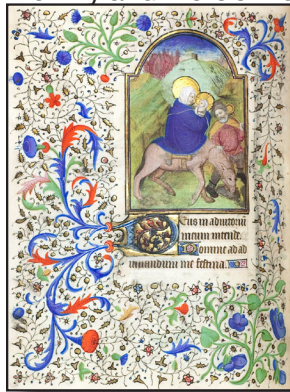 Eus in adiutoriū
meum intende.
Domine ad ad
iuuandum me festina.